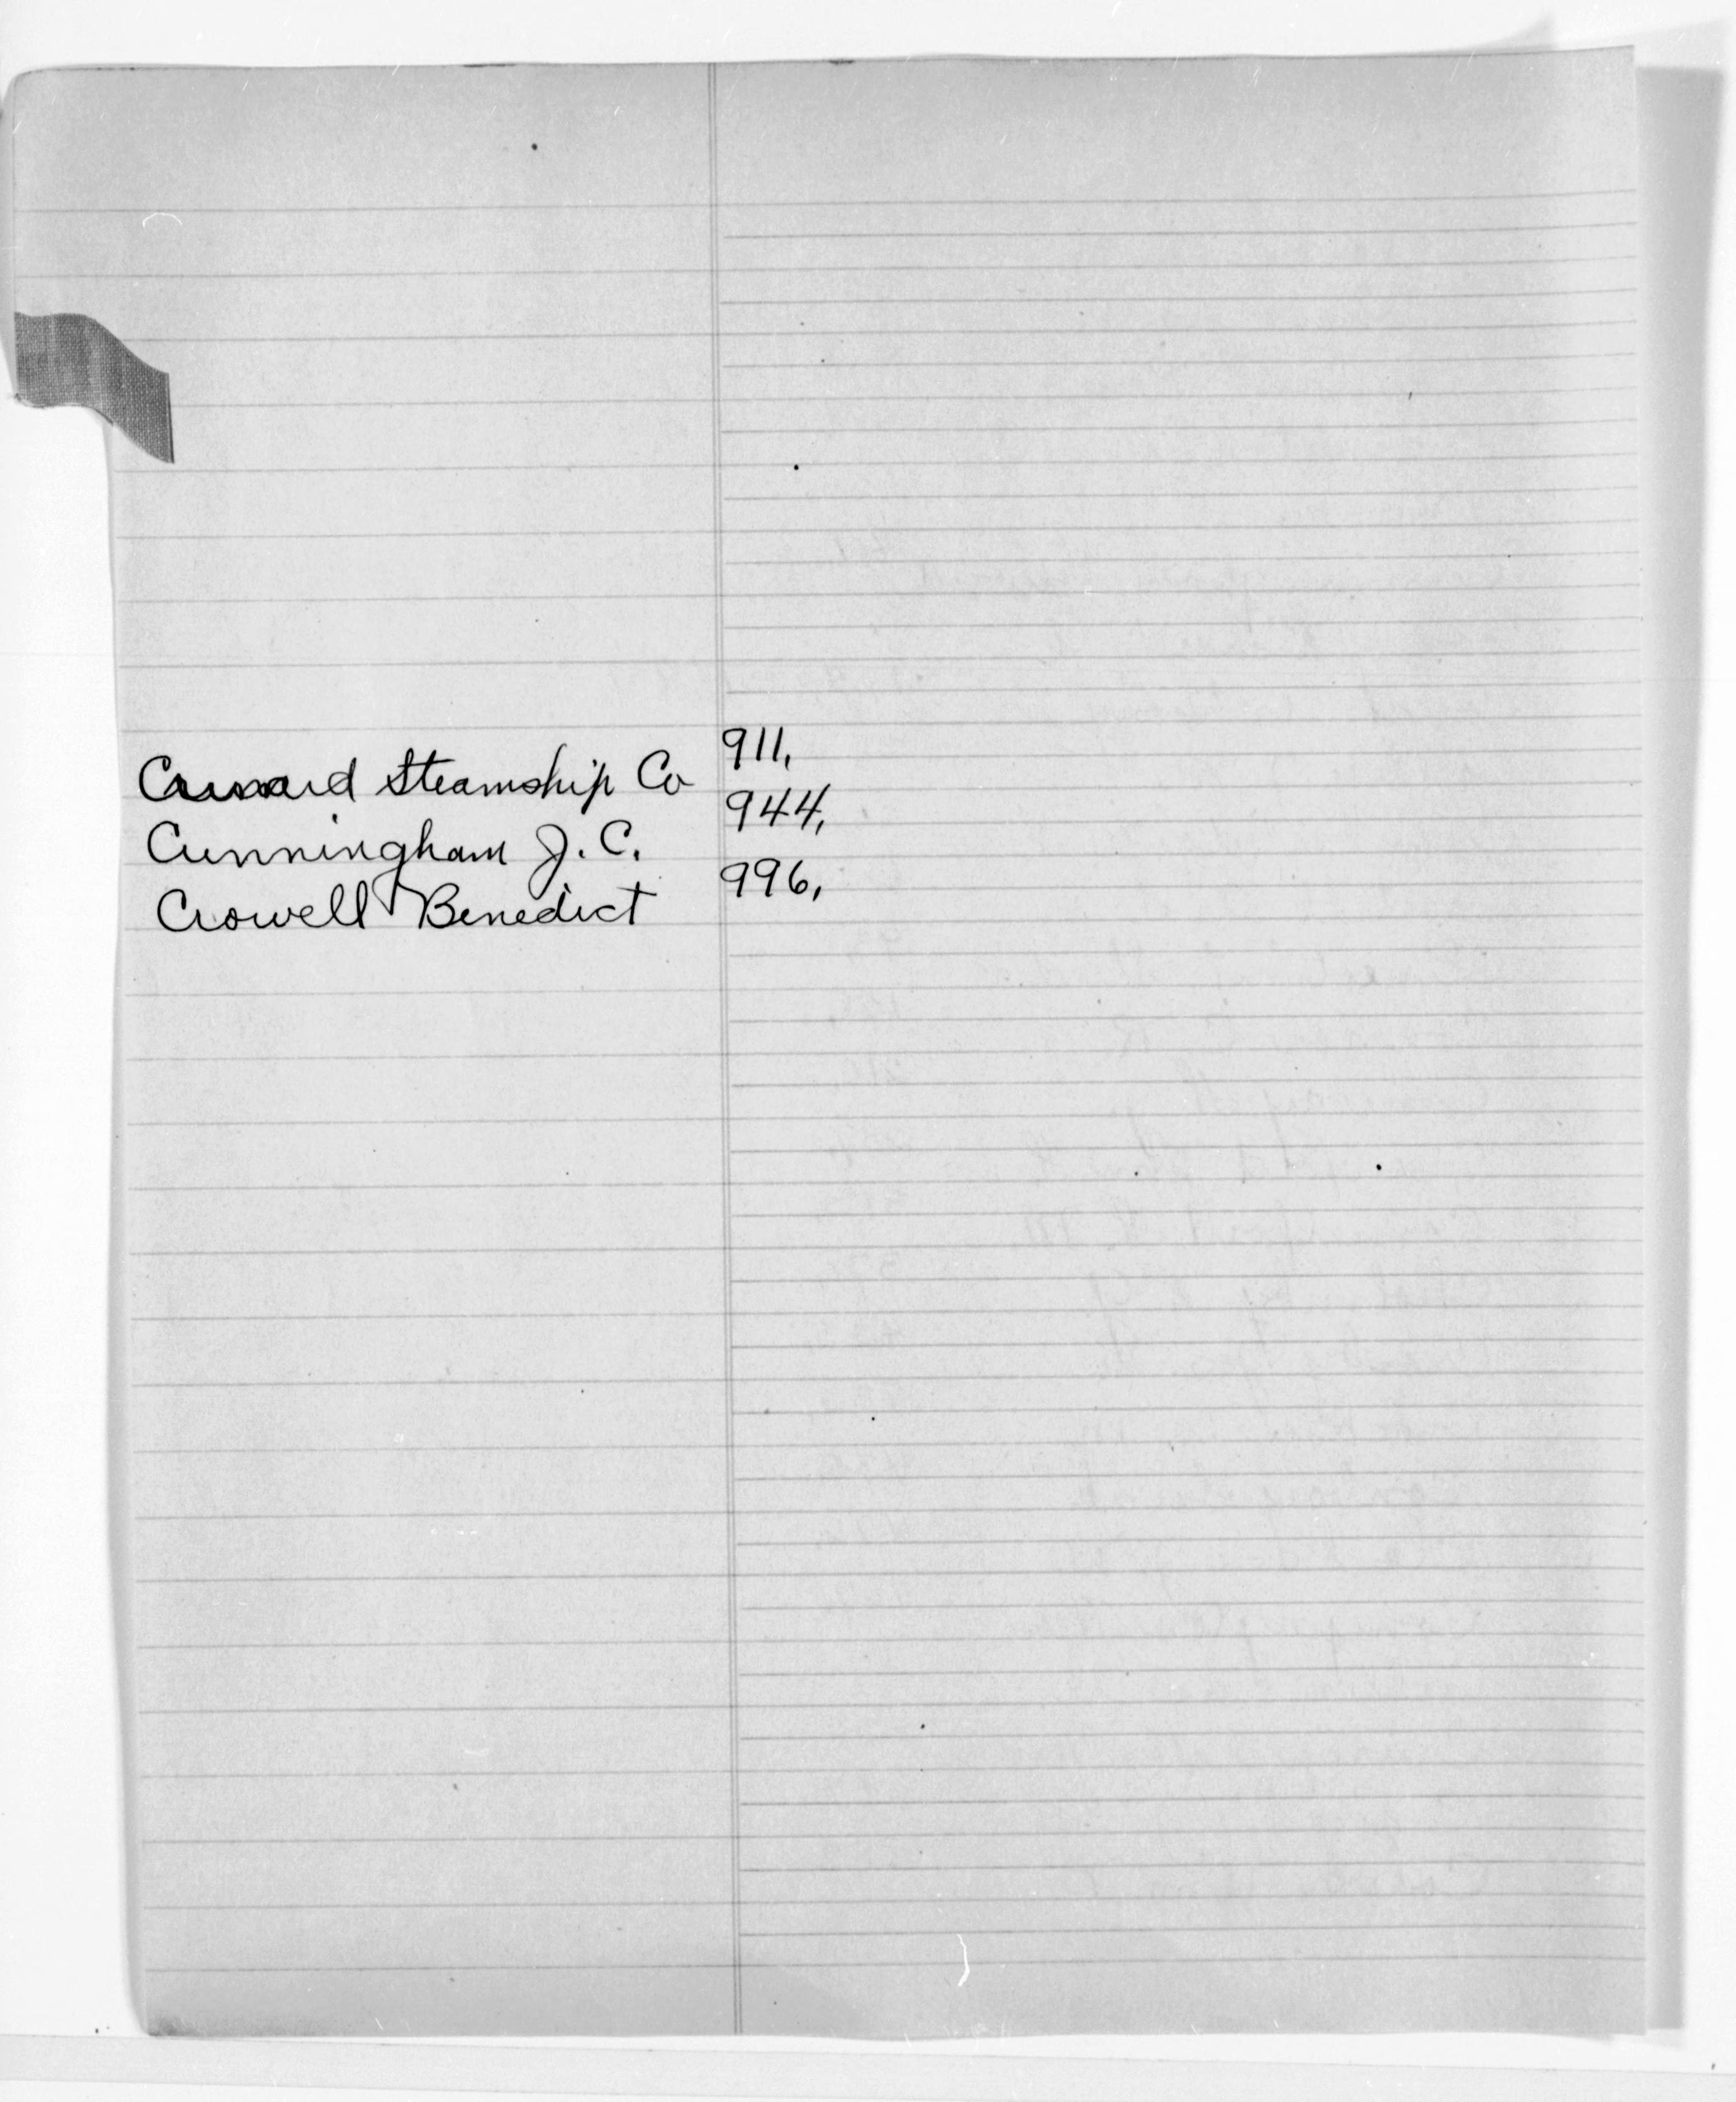 Cunard Steamship Co 911,
Cunningham J. C. 944,
Crowell Benedict 996,